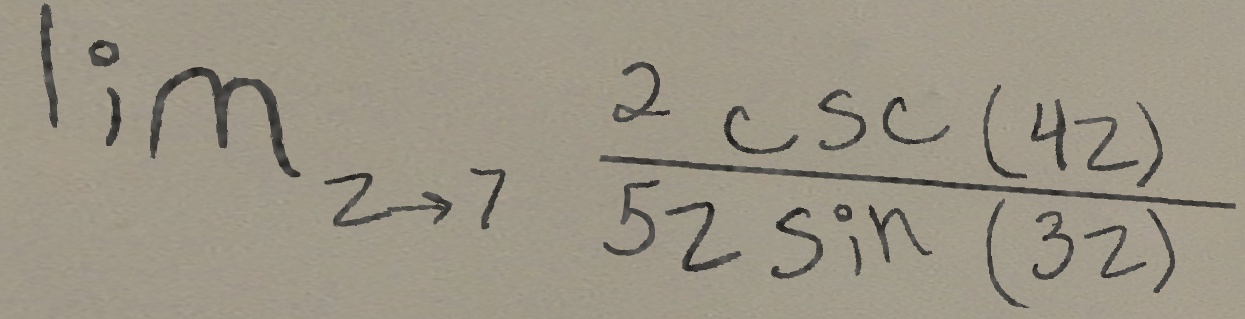 lim_{z→7} \frac{2 csc (4z)}{5z sin (3z)}